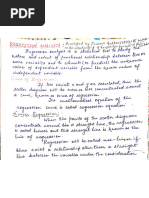 REGRESSION ANALYSIS
Regression analysis is a statistical tool to study the
nature and extent of functional relationship between two or
more variable and to estimate (or predict) the unknown
value of dependent variable from the known value of
independent variable.
Line of Regression
If the variables x and y are correlated then the
scatter diagram will be more or less concentrated around
a curve, known as curve of regression.
The mathematical equation of the
regression curve is called regression equation.
Linear Regression
When the points of the scatter diagram
concentrate around a straight line, the regression
is called linear and this straight line is known as the
line of regression.
Regression will be called non-linear if
there exists a relationship other than a straight
line between the variables under consideration.